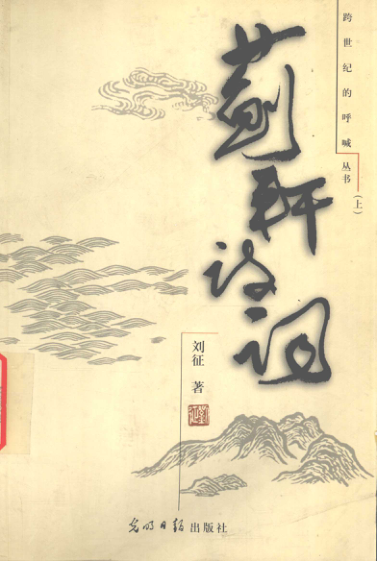 跨世纪的呼喊丛书(上)
蓟轩诗词
刘征 著
光明日报出版社